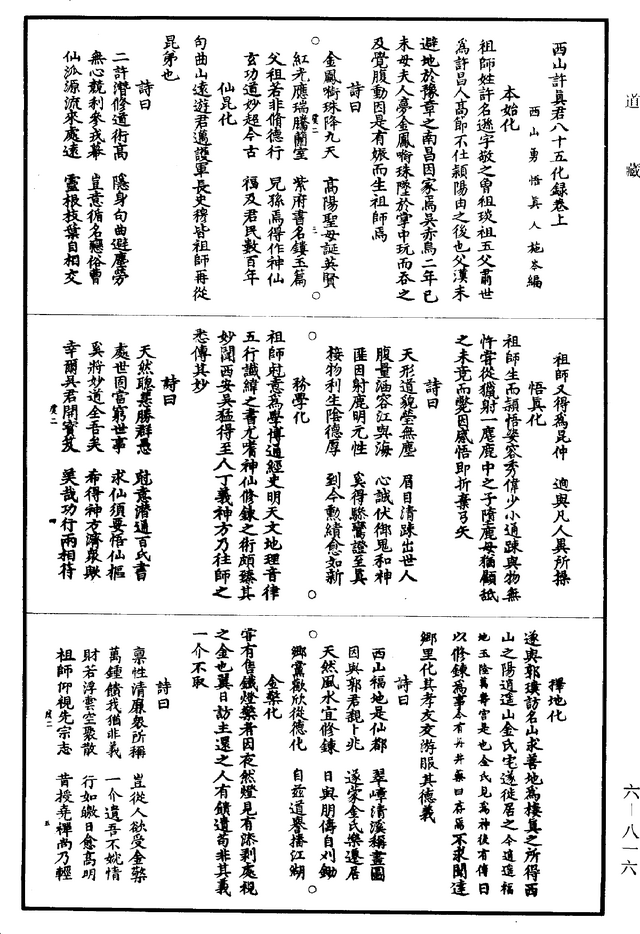 道藏
西山許真君八十五化録卷上
西山勇悟真人施岑編
本始化
祖師姓許名遜字敬之曾祖琰祖五父肅世
為許昌人髙節不仕潁陽由之後也父漢末
避地於豫章之南昌因家焉吳赤烏二年己
未母夫人夢金鳳啣珠墜於掌中玩而吞之
及覺腹動因是有娠而生祖師焉
詩曰
金鳳啣珠降九天　髙陽聖母誕英賢
紅光應瑞騰蘭室　紫府書名鏤玉篇
父祖若非脩德行　兒孫焉得作神仙
玄功道妙超今古　福及君民數百年
仙昆化
句曲山遠遊君邁護軍長史穆皆祖師再從
昆弟也
詩曰
二許潛修道術髙　隱身句曲避塵勞
無心競利參戎幕　豈意循名戀俗曹
仙派源流來處遠　靈根枝葉自相交
祖師又得為昆仲　逈與凡人異所操
悟真化
祖師生而頴悟姿容秀偉少小通踈與物無
忤甞從獵射一麀鹿中之子隋鹿母猶顧舐
之未竟而斃因感悟即折棄弓矢
詩曰
天形道貌瑩無塵　眉目清踈出世人
腹量涵容江與海　心誠伏御鬼和神
匪因射鹿明元性　奚得驂鸞證至真
接物利生陰德厚　到今勲績愈如新
務學化
祖師尅意為學博通經史明天文地理音律
五行讖緯之書尤嗜神仙修鍊之術頗臻其
妙聞西安吳猛得至人丁義神方乃往師之
悉傳其妙
詩曰
天然聰慧勝群愚　尅意潛通百氏書
處世固當窮世事　求仙須要悟仙樞
奚將妙道全吾矣　希得神方濟衆歟
幸爾吳君開寶笈　美哉功行兩相符
擇地化
遂與郭璞訪名山求善地為棲真之所得西
山之陽逍遥山金氏宅遂徙居之今逍遥福
地玉隆萬壽宫是也金氏見為神後有傳日
以修鍊為事今有丹井藥臼存焉不求聞達
鄉里化其孝友交游服其德義
詩曰
西山福地是仙都　翠嶂清溪稱畫圖
因與郭君觀卜兆　遂蒙金氏樂遷居
天然風水宜修鍊　日與朋儔自刈鋤
鄉黨歡欣從德化　自兹道譽播江湖
金藥化
甞有售鐵燈檠者因夜然燈見有漆剥處視
之金也翼日訪主還之人有饋遺苟非其義
一介不取
詩曰
禀性清廉衆所稱　豈從人欲受金檠
萬鍾饋我猶非義　一介遺吾不妮情
財若浮雲空聚散　行如皦日愈髙明
祖師仰視先宗志　昔授堯禪尚乃輕
六—八一六